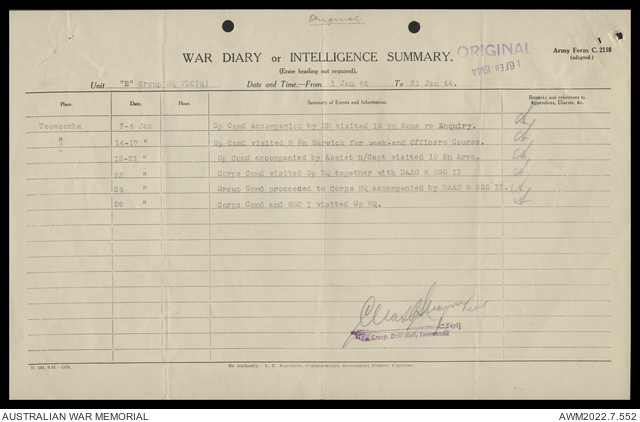 Original
WAR DIARY or INTELLIGENCE SUMMARY.
(Erase heading not required).
ORIGINAL
16 FEB 1944
Army Form C. 2118
(adapted.)
Unit "B" Group HQ VDC(Q) Date and Time.—From 1 Jan 44 To 31 Jan 44.
Place. Date. Hour. Summary of Events and Information. Remarks and references to
Appendices, Diaries, &c.
Toowoomba 3-6 Jan Gp Comd accompanied by BM visited 19 Bn Roma re Enquiry.
" 14-17 " Gp Comd visited 8 Bn Warwick for week-end Officers Course.
" 18-21 " Gp Comd accompanied by Assist S/Capt visited 19 Bn Area.
23 " Corps Comd visited Gp HQ together with DAAG & GSO II
24 " Group Comd proceeded to Corps HQ accompanied by DAAG & GSO II.
26 " Corps Comd and GSO I visited Gp HQ.
Group: Drill Hall, Toowoomba
By Authority: L. F. Johnston, Commonwealth Government Printer, Canberra.
AUSTRALIAN WAR MEMORIAL AWM2022.7.552